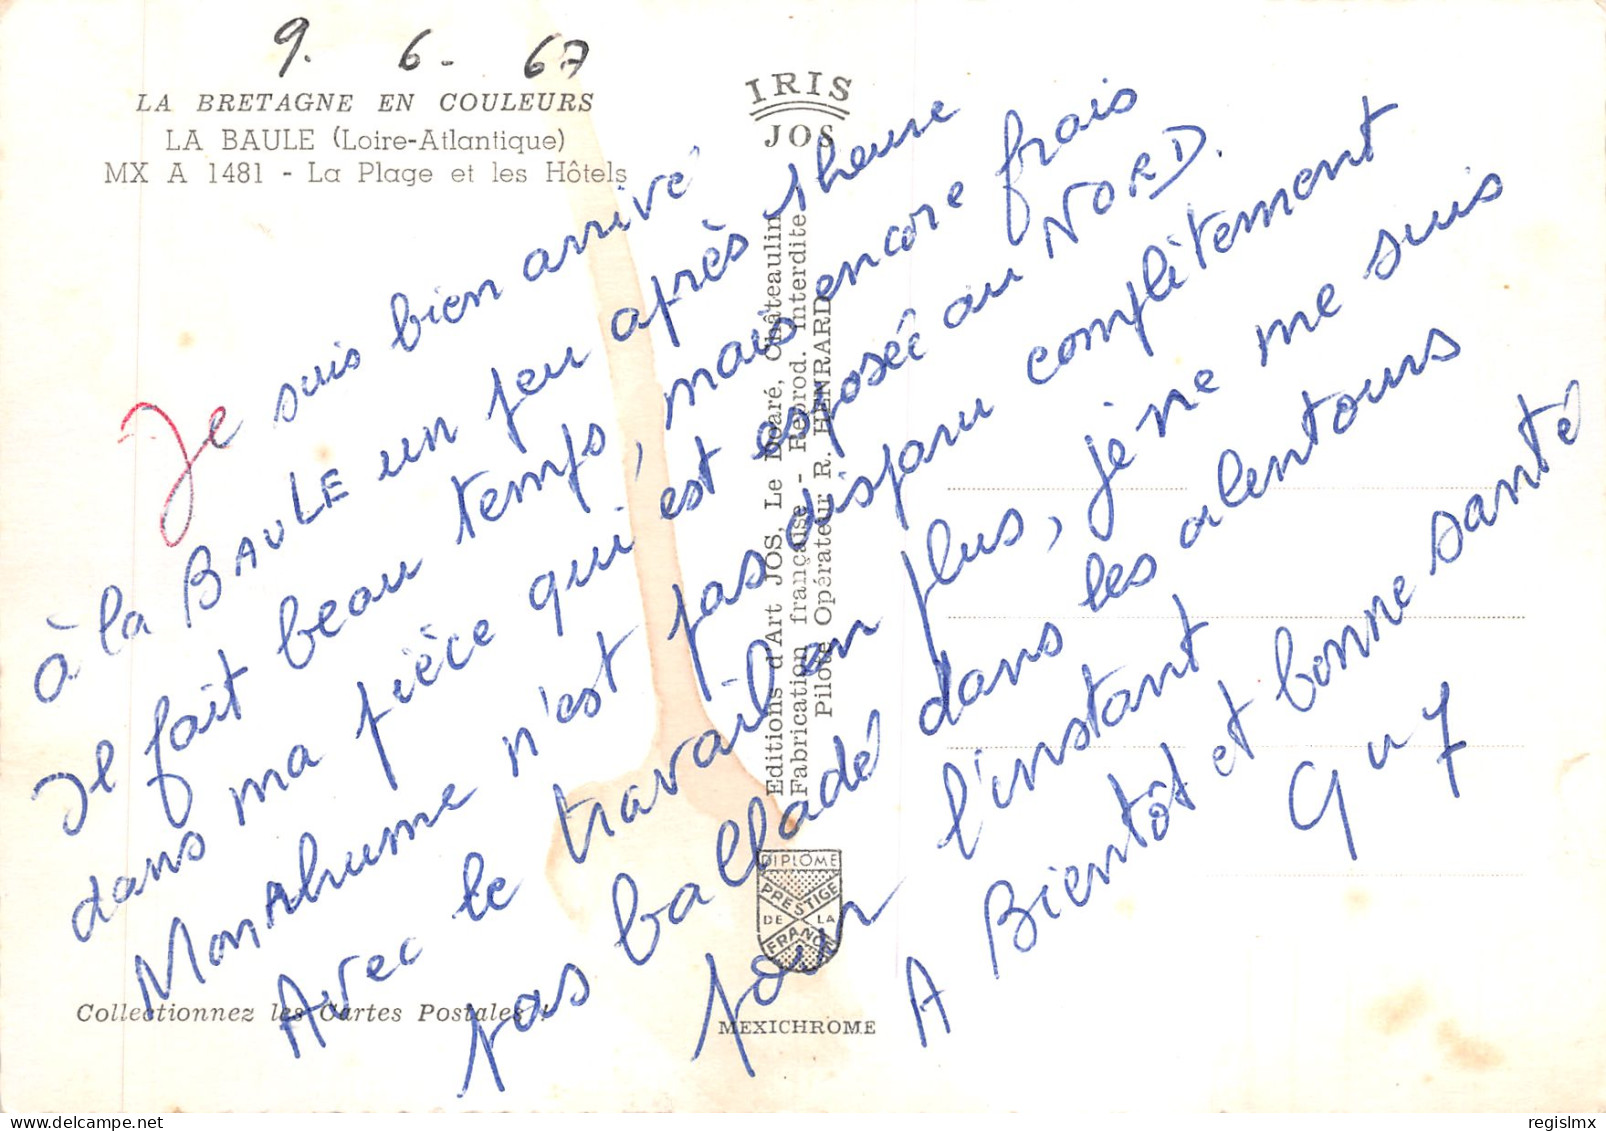 9. 6 - 67
LA BRETAGNE EN COULEURS
LA BAULE (Loire-Atlantique)
MX A 1481 - La Plage et les Hôtels
IRIS
JOS
Je suis bien arrivé
à la BAULE un peu après 1 heure
Il fait beau temps, mais encore frais
dans ma pièce qui est exposée au NORD.
Mon rhume n'est pas disparu complètement
Avec le travail en plus, je ne me suis
pas balladé dans les alentours
pour l'instant
A Bientôt et bonne santé
Guy
Editions d'Art JOS, Le Doaré, Châteaulin
Fabrication française - Reprod. interdite
Pilote Opérateur R. HENRARD
DIPLOME
PRESTIGE
DE LA
FRANCE
Collectionnez les Cartes Postales !
MEXICHROME
regislmx